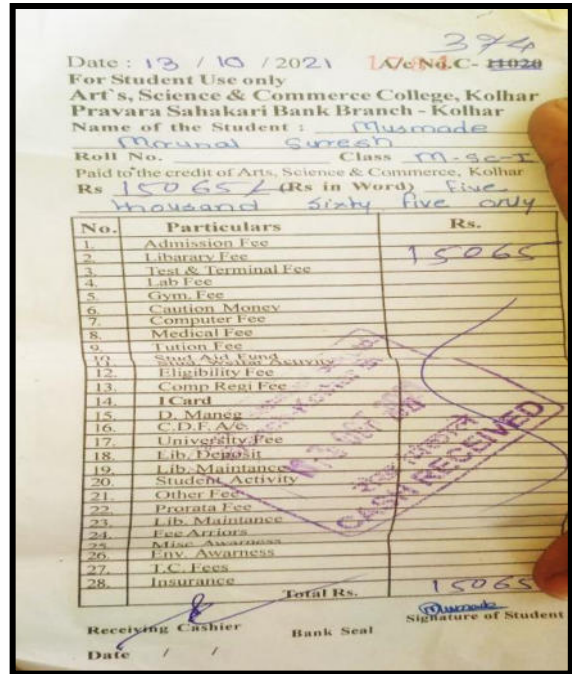 394
Date : 13 / 10 / 2021 A/c No.C- 11020
For Student Use only
Art`s, Science & Commerce College, Kolhar
Pravara Sahakari Bank Branch - Kolhar
Name of the Student : Musmade
Mrunal Suresh
Roll No. Class M-sc-I
Paid to the credit of Arts, Science & Commerce, Kolhar
Rs 15065/- (Rs in Word) Five
thousand sixty five only
No. Particulars Rs.
1. Admission Fee
2. Libarary Fee 15065
3. Test & Terminal Fee
4. Lab Fee
5. Gym. Fee
6. Caution Money
7. Computer Fee
8. Medical Fee
9. Tution Fee
10. Stud Aid Fund
11. Stud. Welfar Activity
12. Eligibility Fee
13. Comp Regi Fee
14. I Card
15. D. Maneg
16. C.D.F. A/c.
17. University Fee
18. Lib. Deposit
19. Lib. Maintance
20. Student Activity
21. Other Fee
22. Prorata Fee
23. Lib. Maintance
24. Fee Arriors
25. Misc Awarness
26. Env. Awarness
27. T.C. Fees
28. Insurance
Total Rs. 15065
13 OCT
CASH RECEIVED
Musmade
Receiving Cashier Bank Seal Signature of Student
Date / /